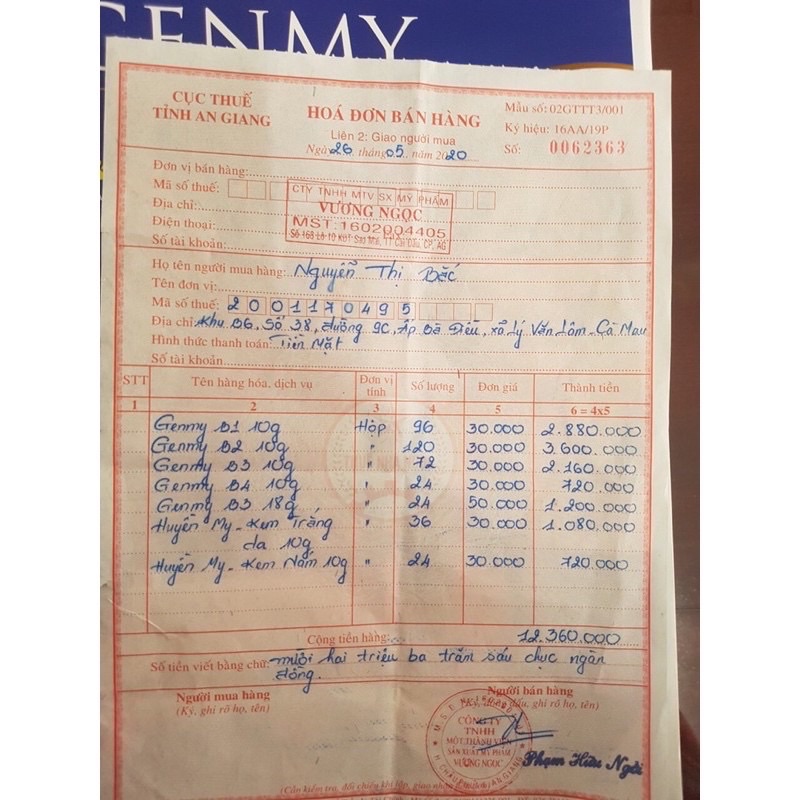 GENMY
CỤC THUẾ
TỈNH AN GIANG
HOÁ ĐƠN BÁN HÀNG
Liên 2: Giao người mua
Ngày 26 tháng 05 năm 2020
Mẫu số: 02GTTT3/001
Ký hiệu: 16AA/19P
Số: 0062363
Đơn vị bán hàng:
Mã số thuế:
Địa chỉ:
Điện thoại:
Số tài khoản:
CTY TNHH MTV SX MỸ PHẨM
VƯƠNG NGỌC
MST: 1602004405
Số 168 Lô 10 KDT Sao Mai, TT Cái Dầu, CP, AG
Họ tên người mua hàng: Nguyễn Thị Bắc
Tên đơn vị:
Mã số thuế: 2001170495
Địa chỉ: Khu B6, Số 38, đường 9C, Ấp Bà Điều, xã Lý Văn Lâm - Cà Mau
Hình thức thanh toán: Tiền Mặt
Số tài khoản:
STT Tên hàng hóa, dịch vụ Đơn vị tính Số lượng Đơn giá Thành tiền
1 2 3 4 5 6 = 4x5
Genmy B1 10g Hộp 96 30.000 2.880.000
Genmy B2 10g " 120 30.000 3.600.000
Genmy B3 10g " 72 30.000 2.160.000
Genmy B4 10g " 24 30.000 720.000
Genmy B3 18g " 24 50.000 1.200.000
Huyền My - Kem Trắng " 36 30.000 1.080.000
da 10g
Huyền My - Kem Nám 10g " 24 30.000 720.000
Cộng tiền hàng: 12.360.000
Số tiền viết bằng chữ: mười hai triệu ba trăm sáu chục ngàn
đồng.
Người mua hàng
(Ký, ghi rõ họ, tên)
Người bán hàng
CÔNG TY
TNHH
MỘT THÀNH VIÊN
SẢN XUẤT MỸ PHẨM
VƯƠNG NGỌC
Phạm Hữu Ngôi
(Cần kiểm tra, đối chiếu khi lập, giao nhận hóa đơn)